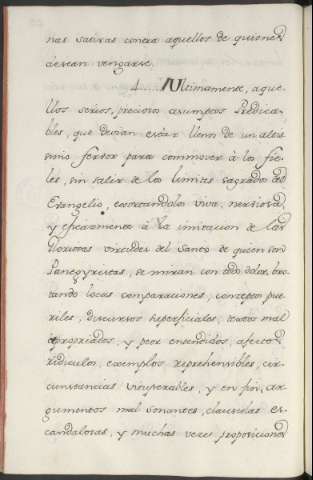 nas satiras contra aquellos de quienes
desean vengarse.
4. Ultimamente, aque-
llos serios, preciosos asumptos Predica-
bles, que devian estàr llenos de un altis
simo fervor para commover à los Fie-
les, sin salir de los limites sagrados del
Evangelio, exortandolos viva, nerviosa,
y eficazmente à la imitacion de las
gloriosas virtudes del Santo de quien son
Panegyristas, se miran con todo dolor bro-
tando locas comparaciones, conceptos pue-
riles, discursos superficiales, textos mal
apropriados, y peor entendidos, afectos
ridiculos, exemplos reprehensibles, cir-
cunstancias vituperables, y en fin, ar-
gumentos mal sonantes, clausulas es-
candalosas, y muchas veces proposiciones